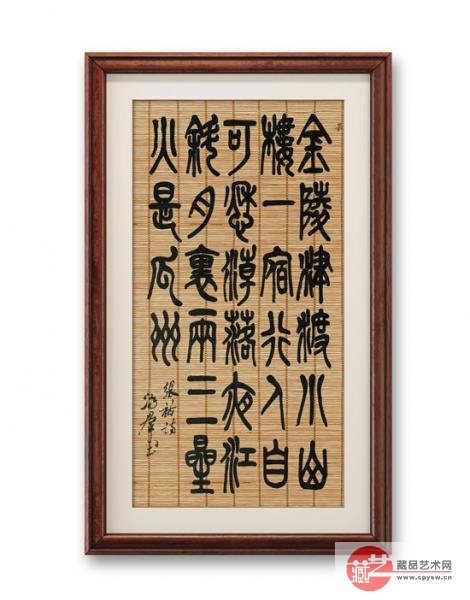 金陵津渡小山
樓一宿行人自
可愁潮落夜江
斜月裏兩三星
火是瓜州
張祜詩
藏艺
藏品艺术网
www.cpysw.cn